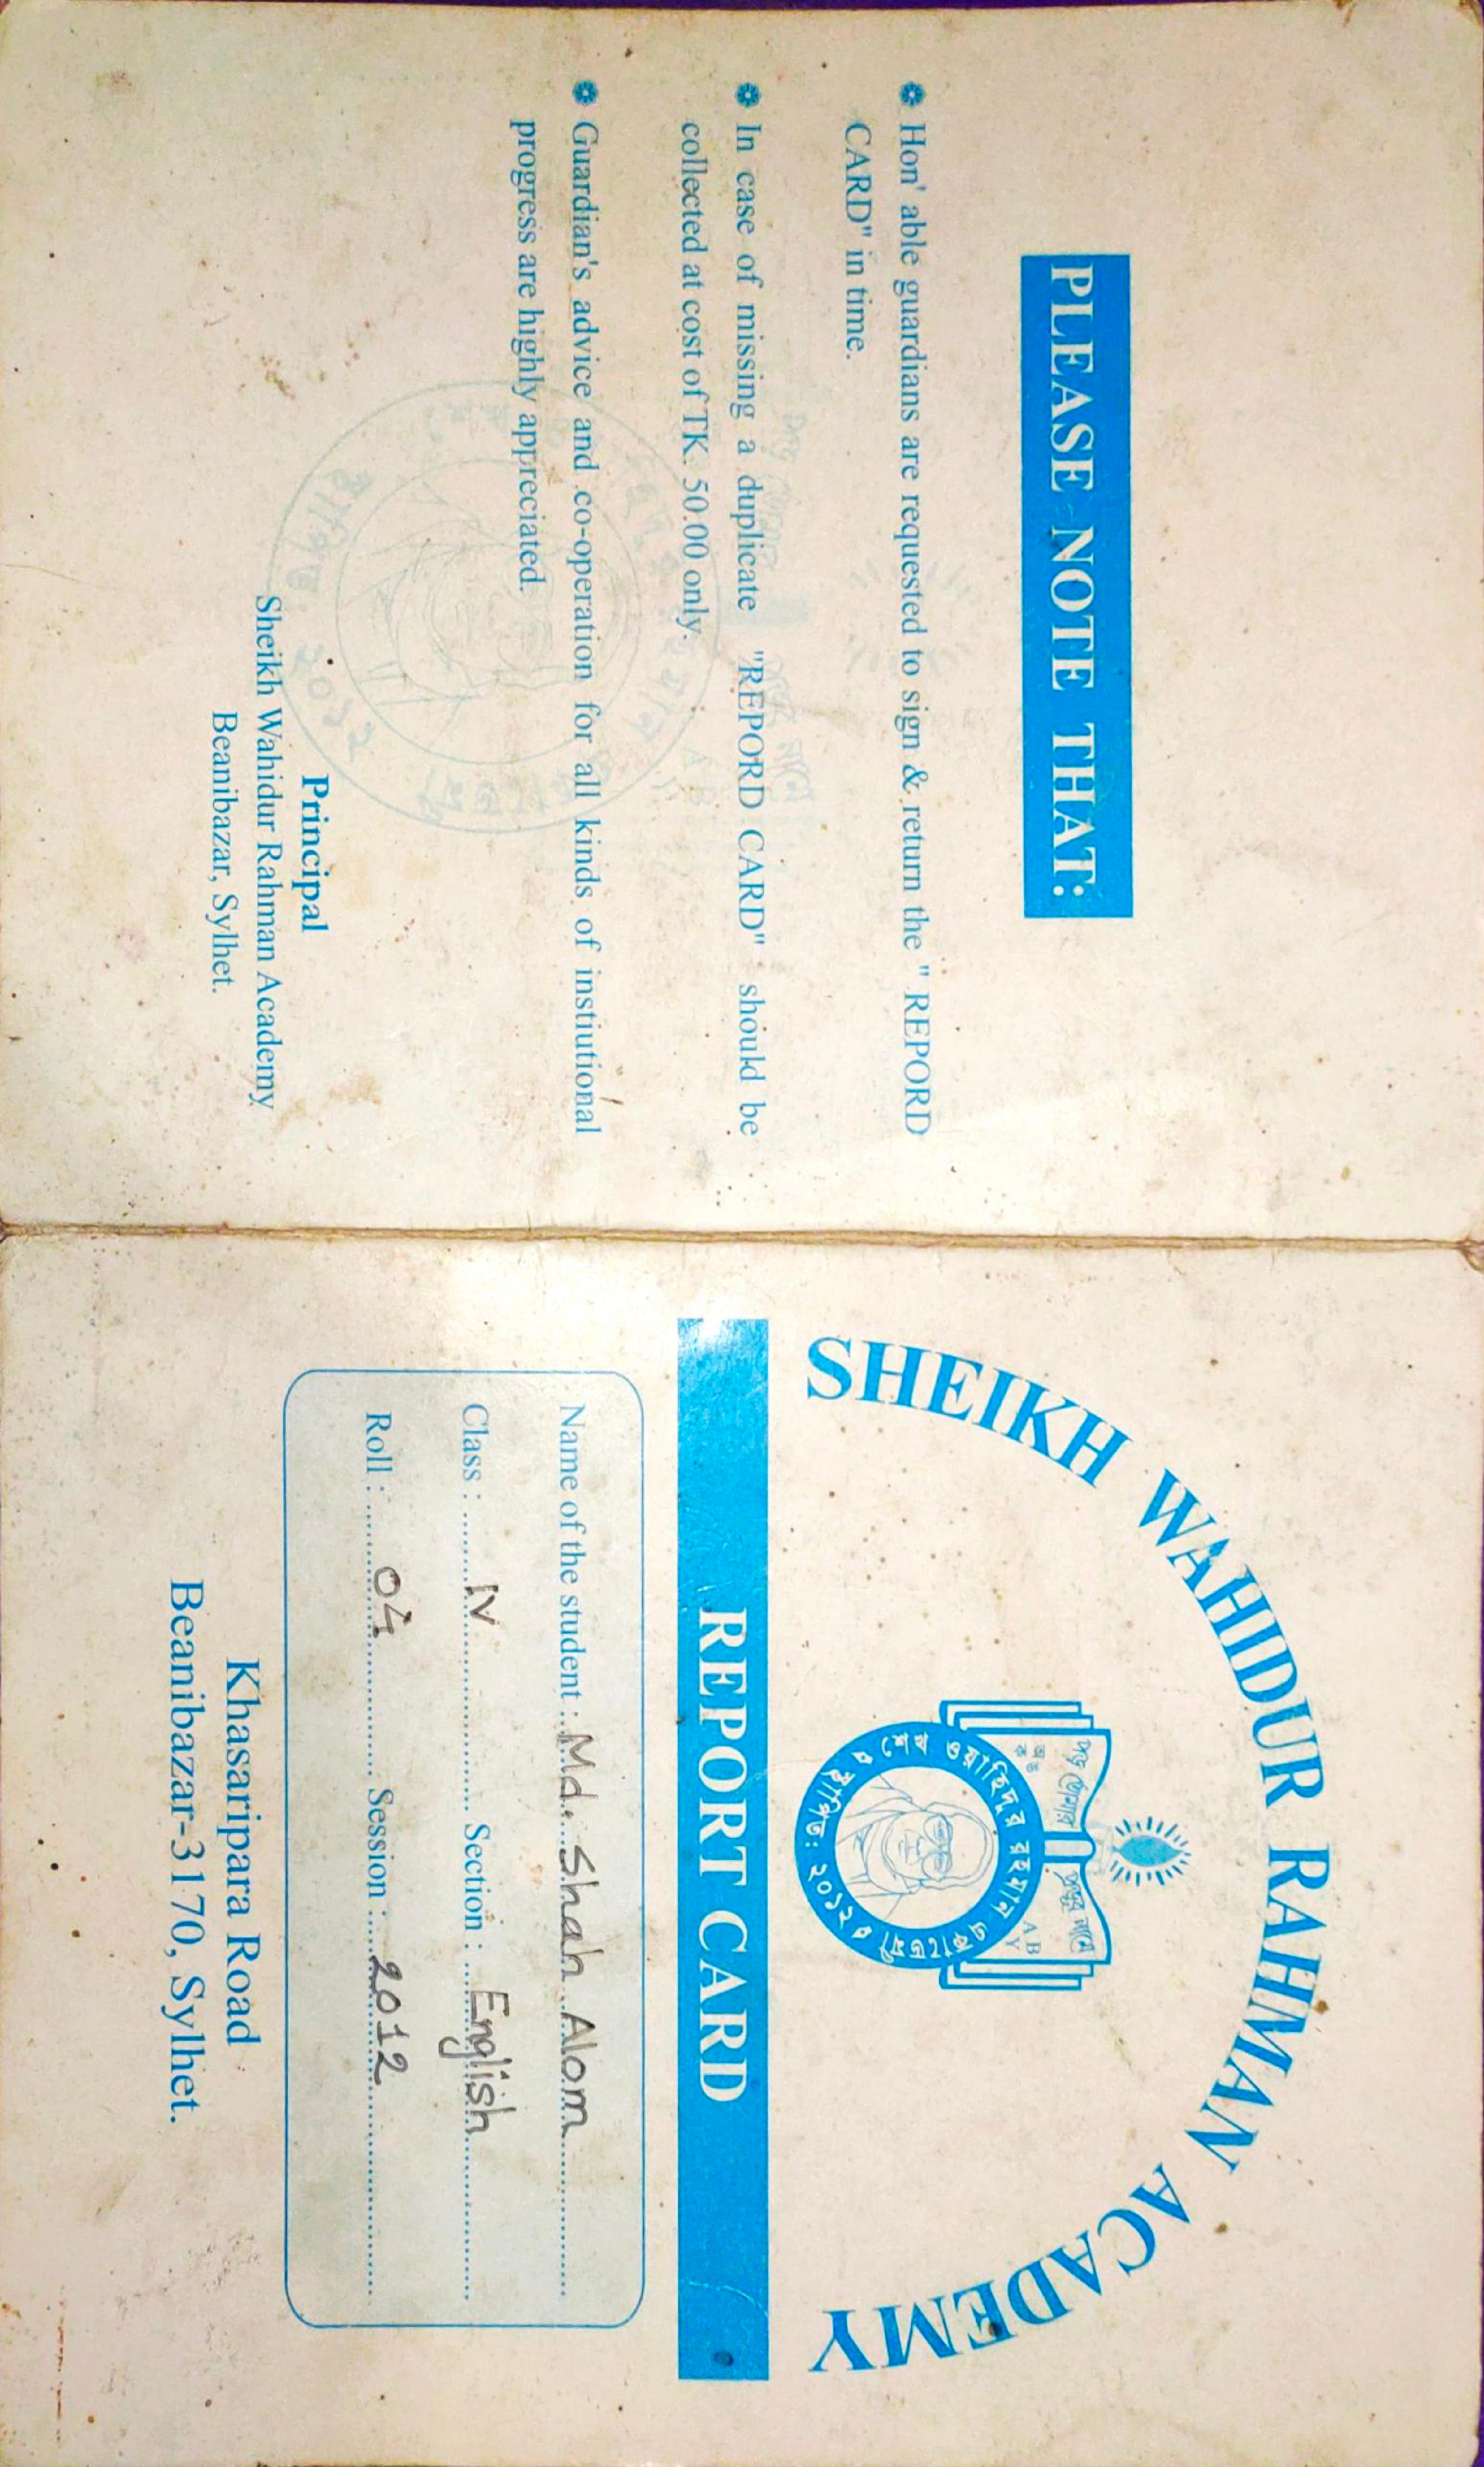 PLEASE NOTE THAT:
Hon' able guardians are requested to sign & return the " REPORD
CARD" in time.
In case of missing a duplicate "REPORD CARD" should be
collected at cost of TK. 50.00 only.
Guardian's advice and co-operation for all kinds of instiutional
progress are highly appreciated.
Principal
Sheikh Wahidur Rahman Academy
Beanibazar, Sylhet.
SHEIKH WAHIDUR RAHMAN ACADEMY
পড় তোমার প্রভুর নামে
অ ঙ
ক
A B
Y
শেখ ওয়াহিদুর রহমান একাডেমী
স্থাপিত: ২০১২
REPORT CARD
Name of the student : Md. Shah Alom
Class : IV Section : English
Roll : 04 Session : 2012
Khasaripara Road
Beanibazar-3170, Sylhet.